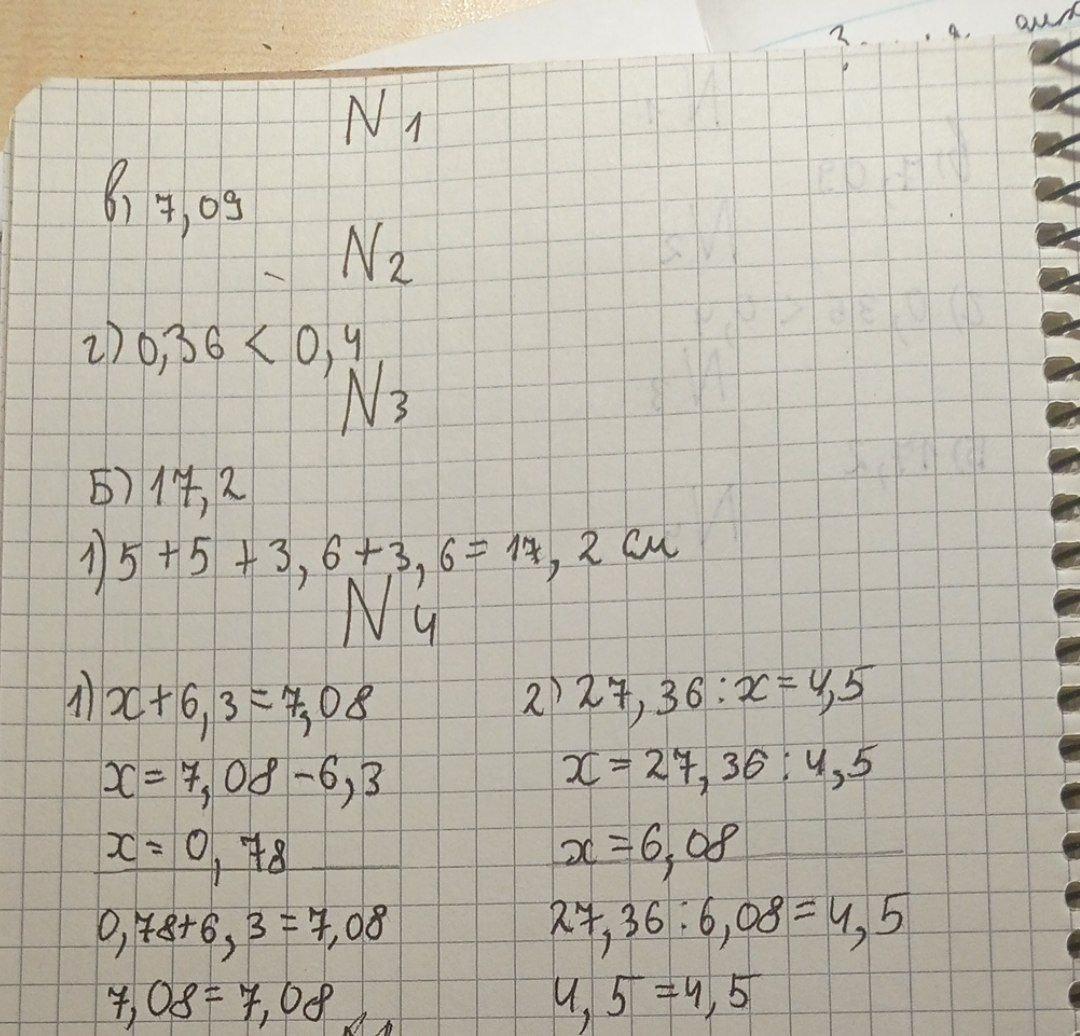 N 1
в) 7,09
N 2
г) 0,36 < 0,4
N 3
Б) 17,2
1) 5 + 5 + 3,6 + 3,6 = 17,2 см
N 4
1) x + 6,3 = 7,08
x = 7,08 - 6,3
x = 0,78
0,78 + 6,3 = 7,08
7,08 = 7,08
2) 27,36 : x = 4,5
x = 27,36 : 4,5
x = 6,08
27,36 : 6,08 = 4,5
4,5 = 4,5